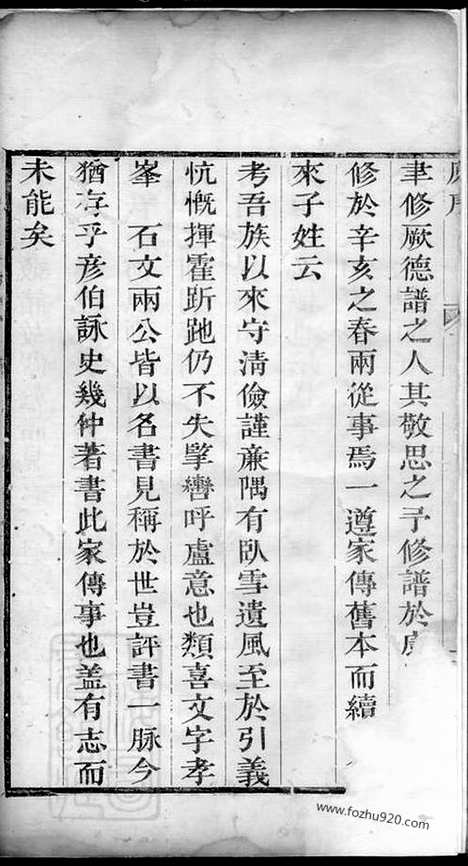 聿修厥德譜之人其敬思之予修譜於
修於辛亥之春兩從事焉一遵家傳舊本而續
來子姓云
考吾族以來守清儉謹亷隅有臥雪遺風至於引義
忼慨揮霍跅跎仍不失擥轡呼盧意也類喜文字孝
峯　石文兩公皆以名書見稱於世豈評書一脉今
猶存乎彥伯詠史幾仲著書此家傳事也盖有志而
未能矣
www.fozhu920.com